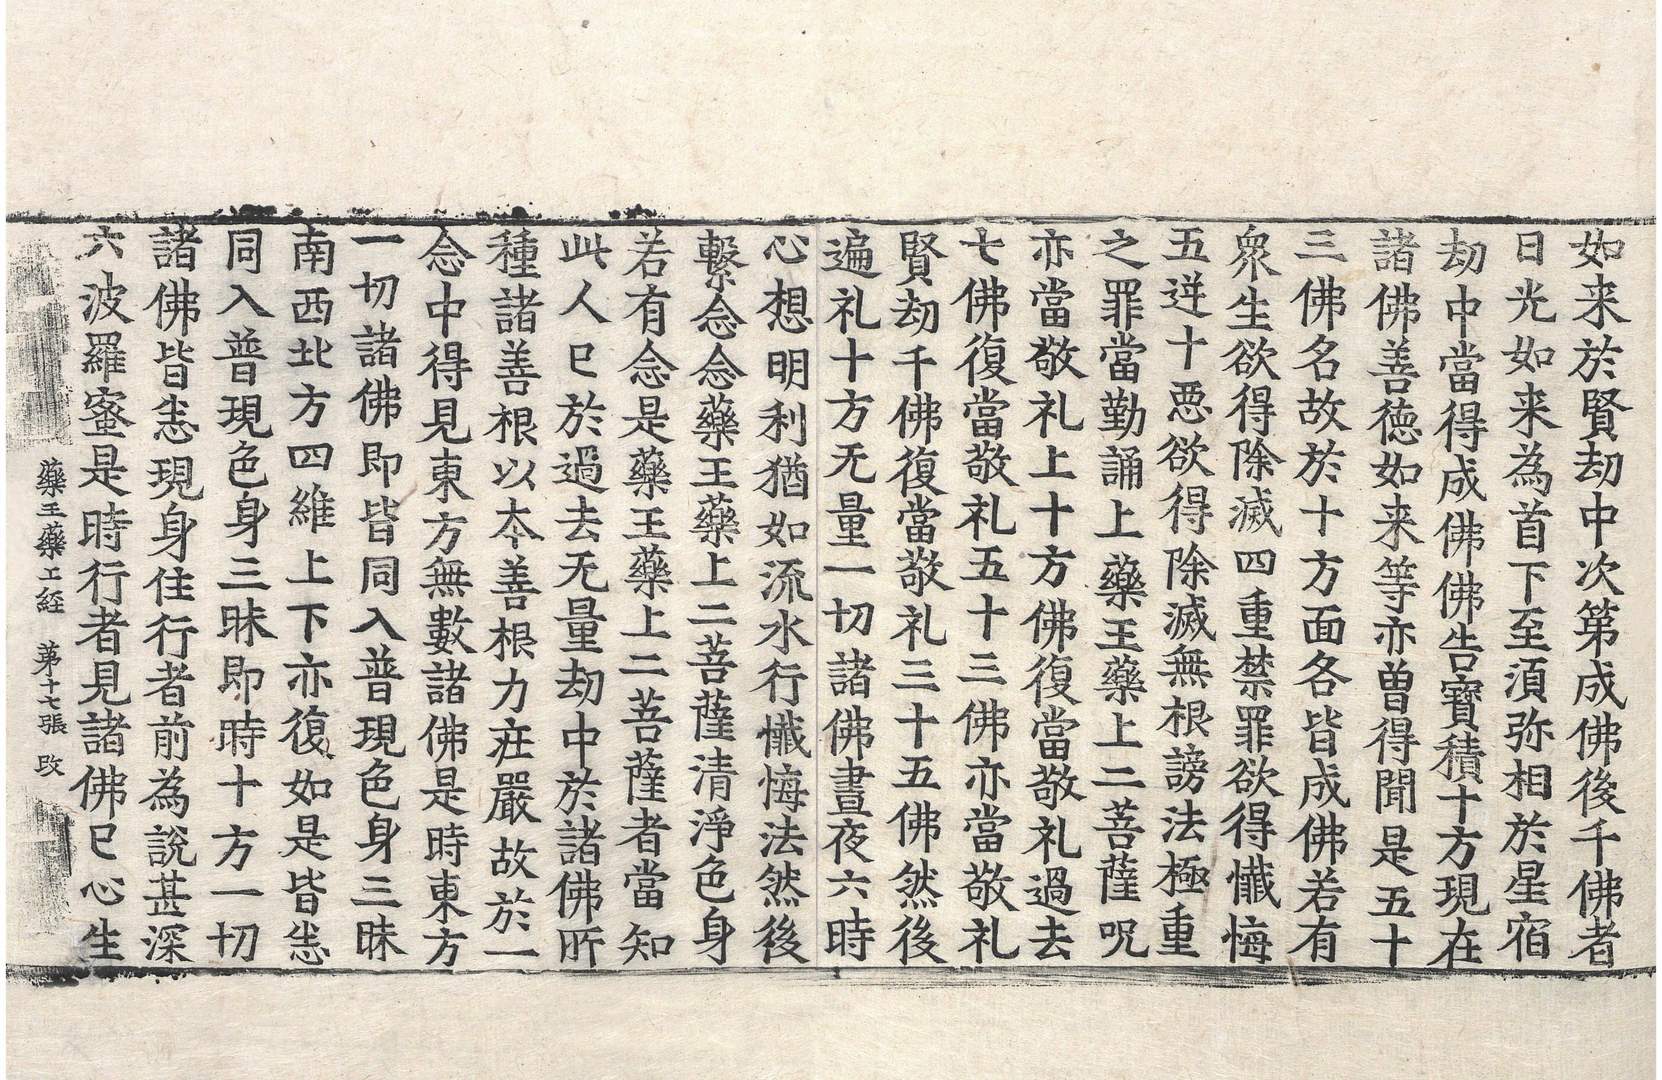 如来於賢劫中次第成佛後千佛者
日光如来為首下至湏弥相於星宿
劫中當得成佛佛告寶積十方現在
諸佛善德如来等亦曽得聞是五十
三佛名故於十方面各皆成佛若有
衆生欲得除滅四重禁罪欲得懺悔
五逆十惡欲得除滅無根謗法極重
之罪當勤誦上藥王藥上二菩薩呪
亦當敬礼上十方佛復當敬礼過去
七佛復當敬礼五十三佛亦當敬礼
賢劫千佛復當敬礼三十五佛然後
遍礼十方无量一切諸佛晝夜六時
心想明利猶如流水行懺悔法然後
繫念念藥王藥上二菩薩清淨色身
若有念是藥王藥上二菩薩者當知
此人已於過去无量劫中於諸佛所
種諸善根以夲善根力庄嚴故於一
念中得見東方無數諸佛是時東方
一切諸佛即皆同入普現色身三昧
南西北方四維上下亦復如是皆悉
同入普現色身三昧即時十方一切
諸佛皆悉現身住行者前為說甚深
六波羅蜜是時行者見諸佛已心生
藥王藥上経　第十七張　改